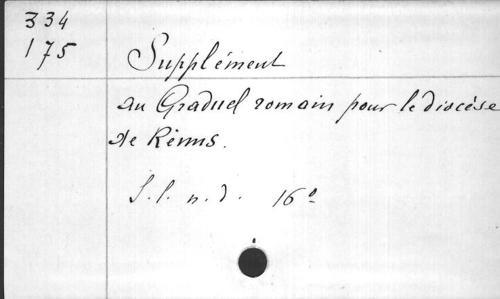 334
175
Supplément
au Graduel romain pour le diocèse
de Reims.
S. l. n. d. 16°